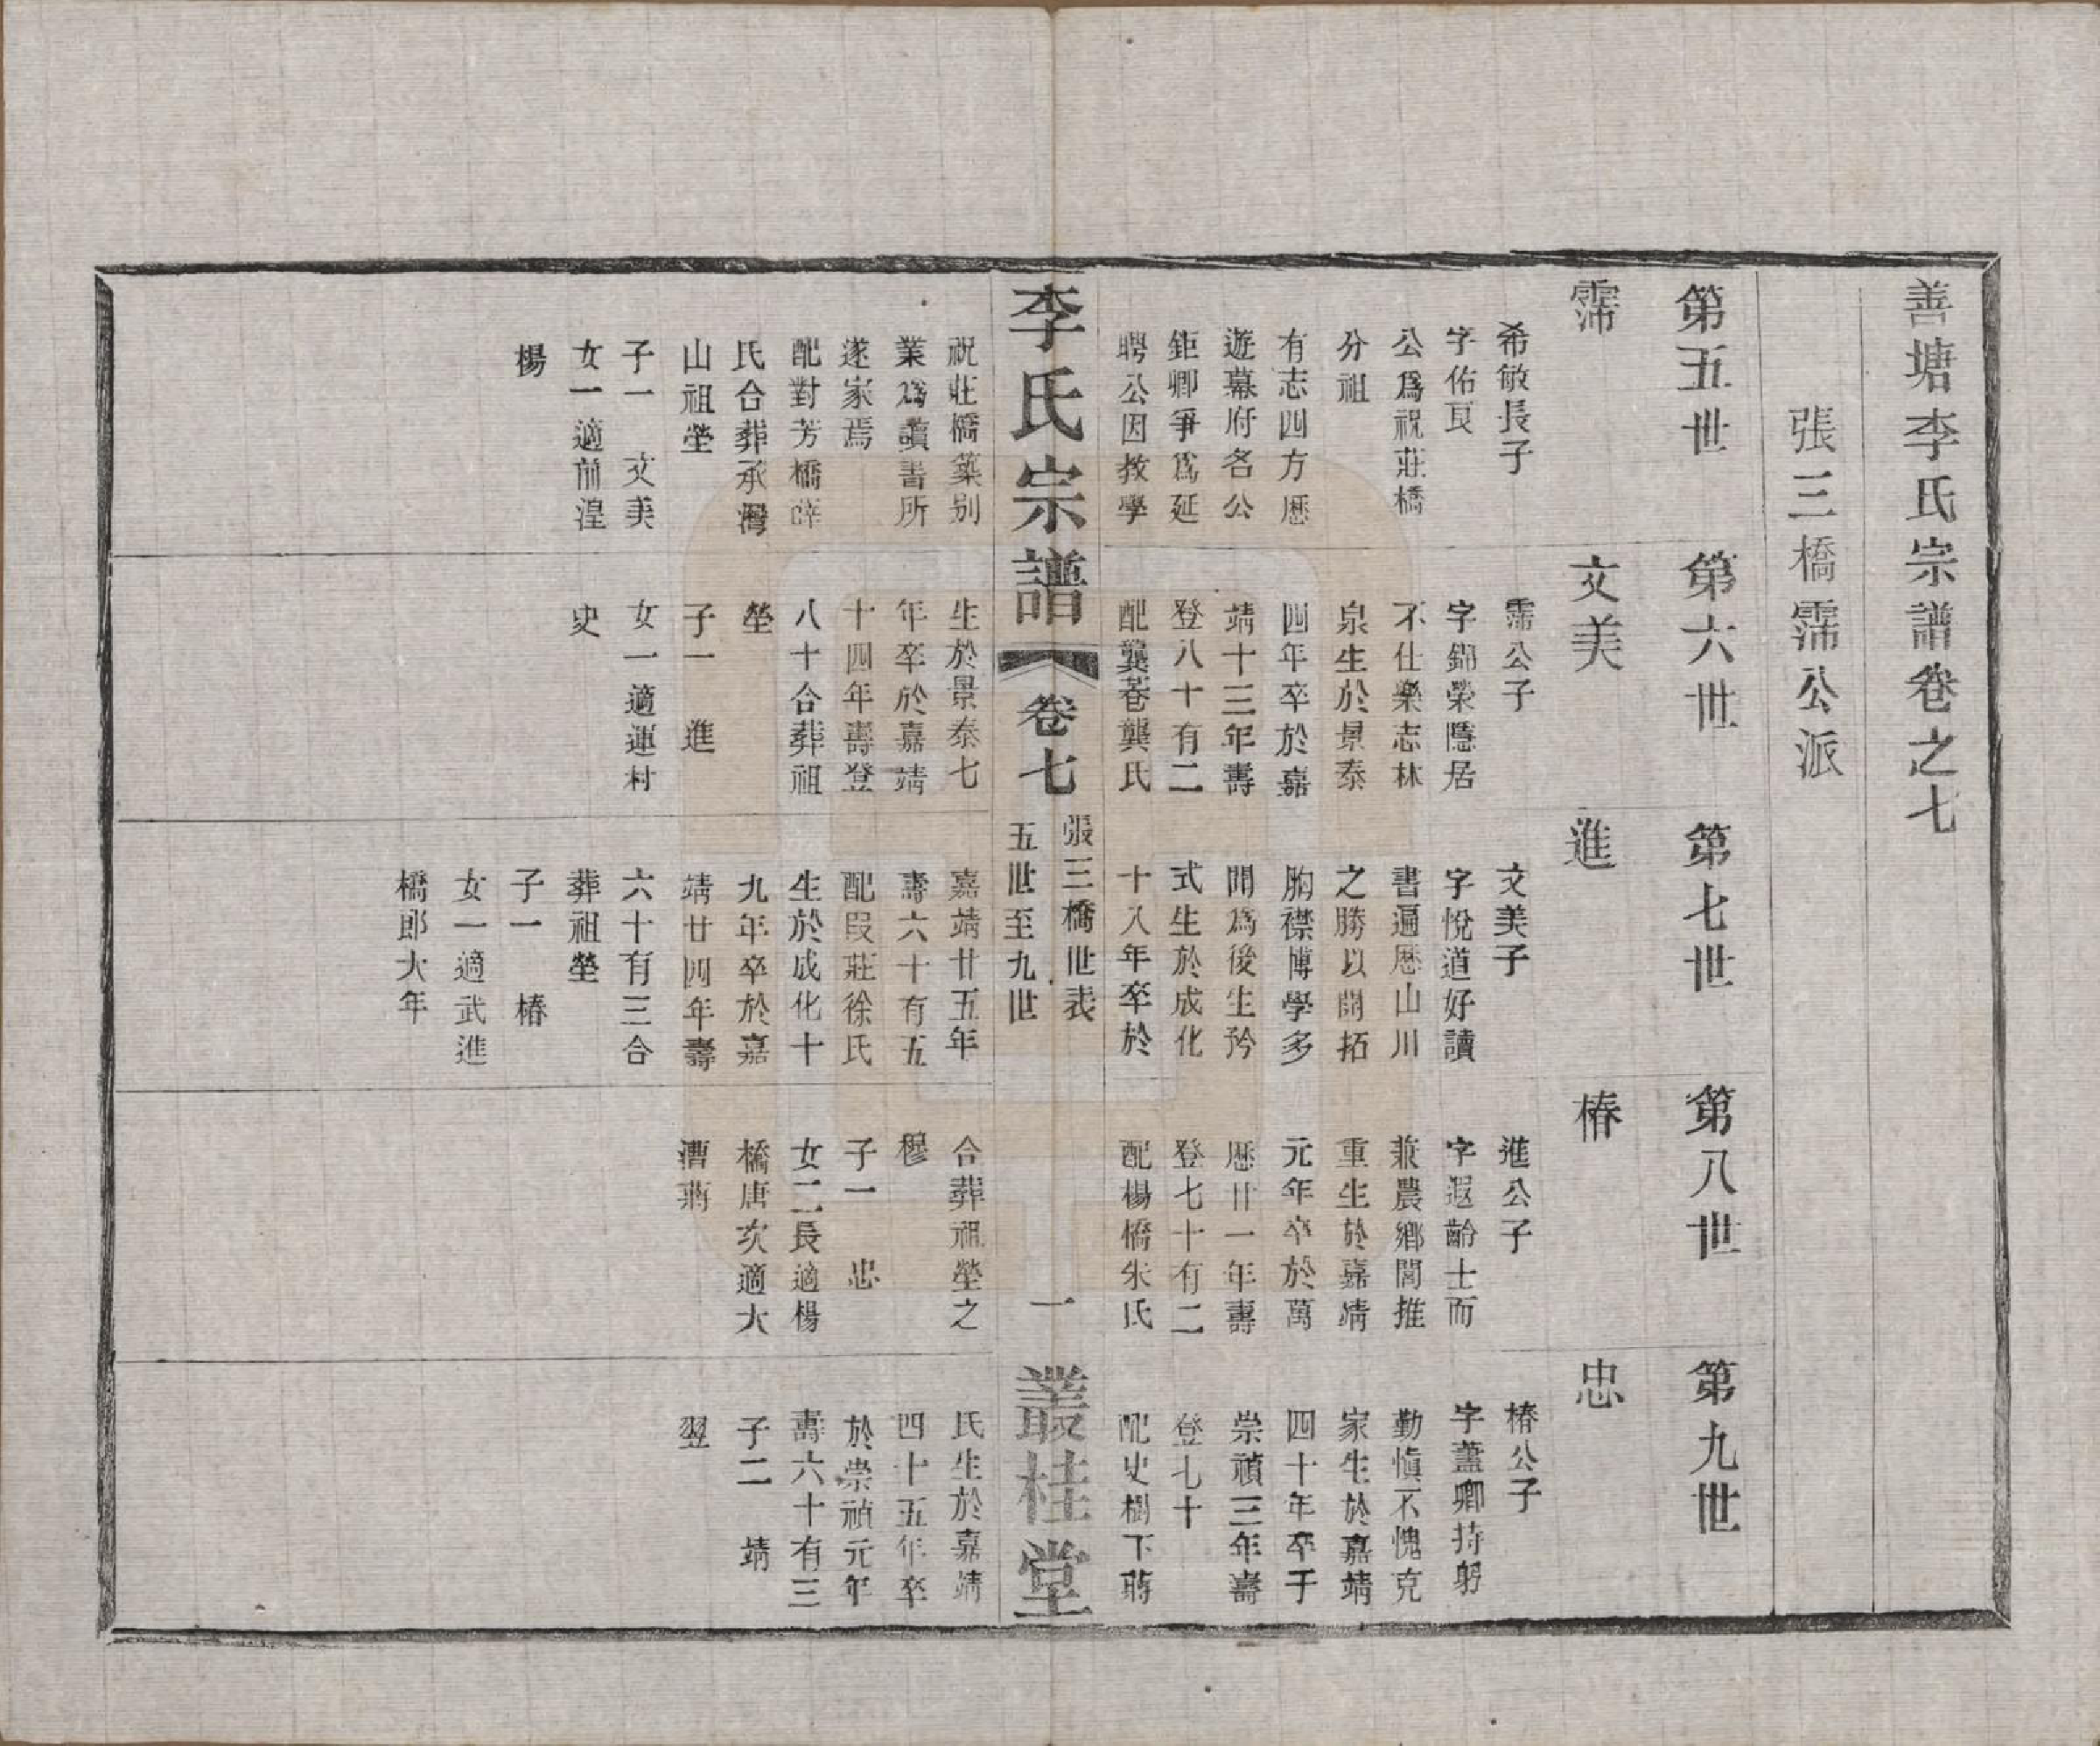 善塘李氏宗譜卷之七
張三橋霈公派
第五世
霈
希敏長子
字佑良
公爲祝莊橋
分祖
有志四方歷
遊幕府名公
鉅卿爭爲延
聘公因教學
祝莊橋築别
業爲讀書所
遂家焉
配對芳橋薛
氏合葬承灣
山祖塋
子一 文美
女一適前湟
楊
第六世
文美
霈公子
字錦榮隱居
不仕樂志林
泉生於景泰
四年卒於嘉
靖十三年壽
登八十有二
配龔巷龔氏
生於景泰七
年卒於嘉靖
十四年壽登
八十合葬祖
塋
子一 進
女一適運村
史
第七世
進
文美子
字悅道好讀
書遍歷山川
之勝以開拓
胸襟博學多
聞爲後生矜
式生於成化
十八年卒於
嘉靖廿五年
壽六十有五
配段莊徐氏
生於成化十
九年卒於嘉
靖廿四年壽
六十有三合
葬祖塋
子一 椿
女一適武進
橋郎大年
第八世
椿
進公子
字遐齡士而
兼農鄉閭推
重生於嘉靖
元年卒於萬
歷廿一年壽
登七十有二
配楊橋朱氏
合葬祖塋之
穆
子一 忠
女二長適楊
橋唐次適大
漕蔣
第九世
忠
椿公子
字藎卿持躬
勤愼不愧克
家生於嘉靖
四十年卒于
崇禎三年壽
登七十
配史樹下蔣
氏生於嘉靖
四十五年卒
於崇禎元年
壽六十有三
子二 靖
翌
李氏宗譜 卷七 張三橋世表
五世至九世
一 叢桂堂